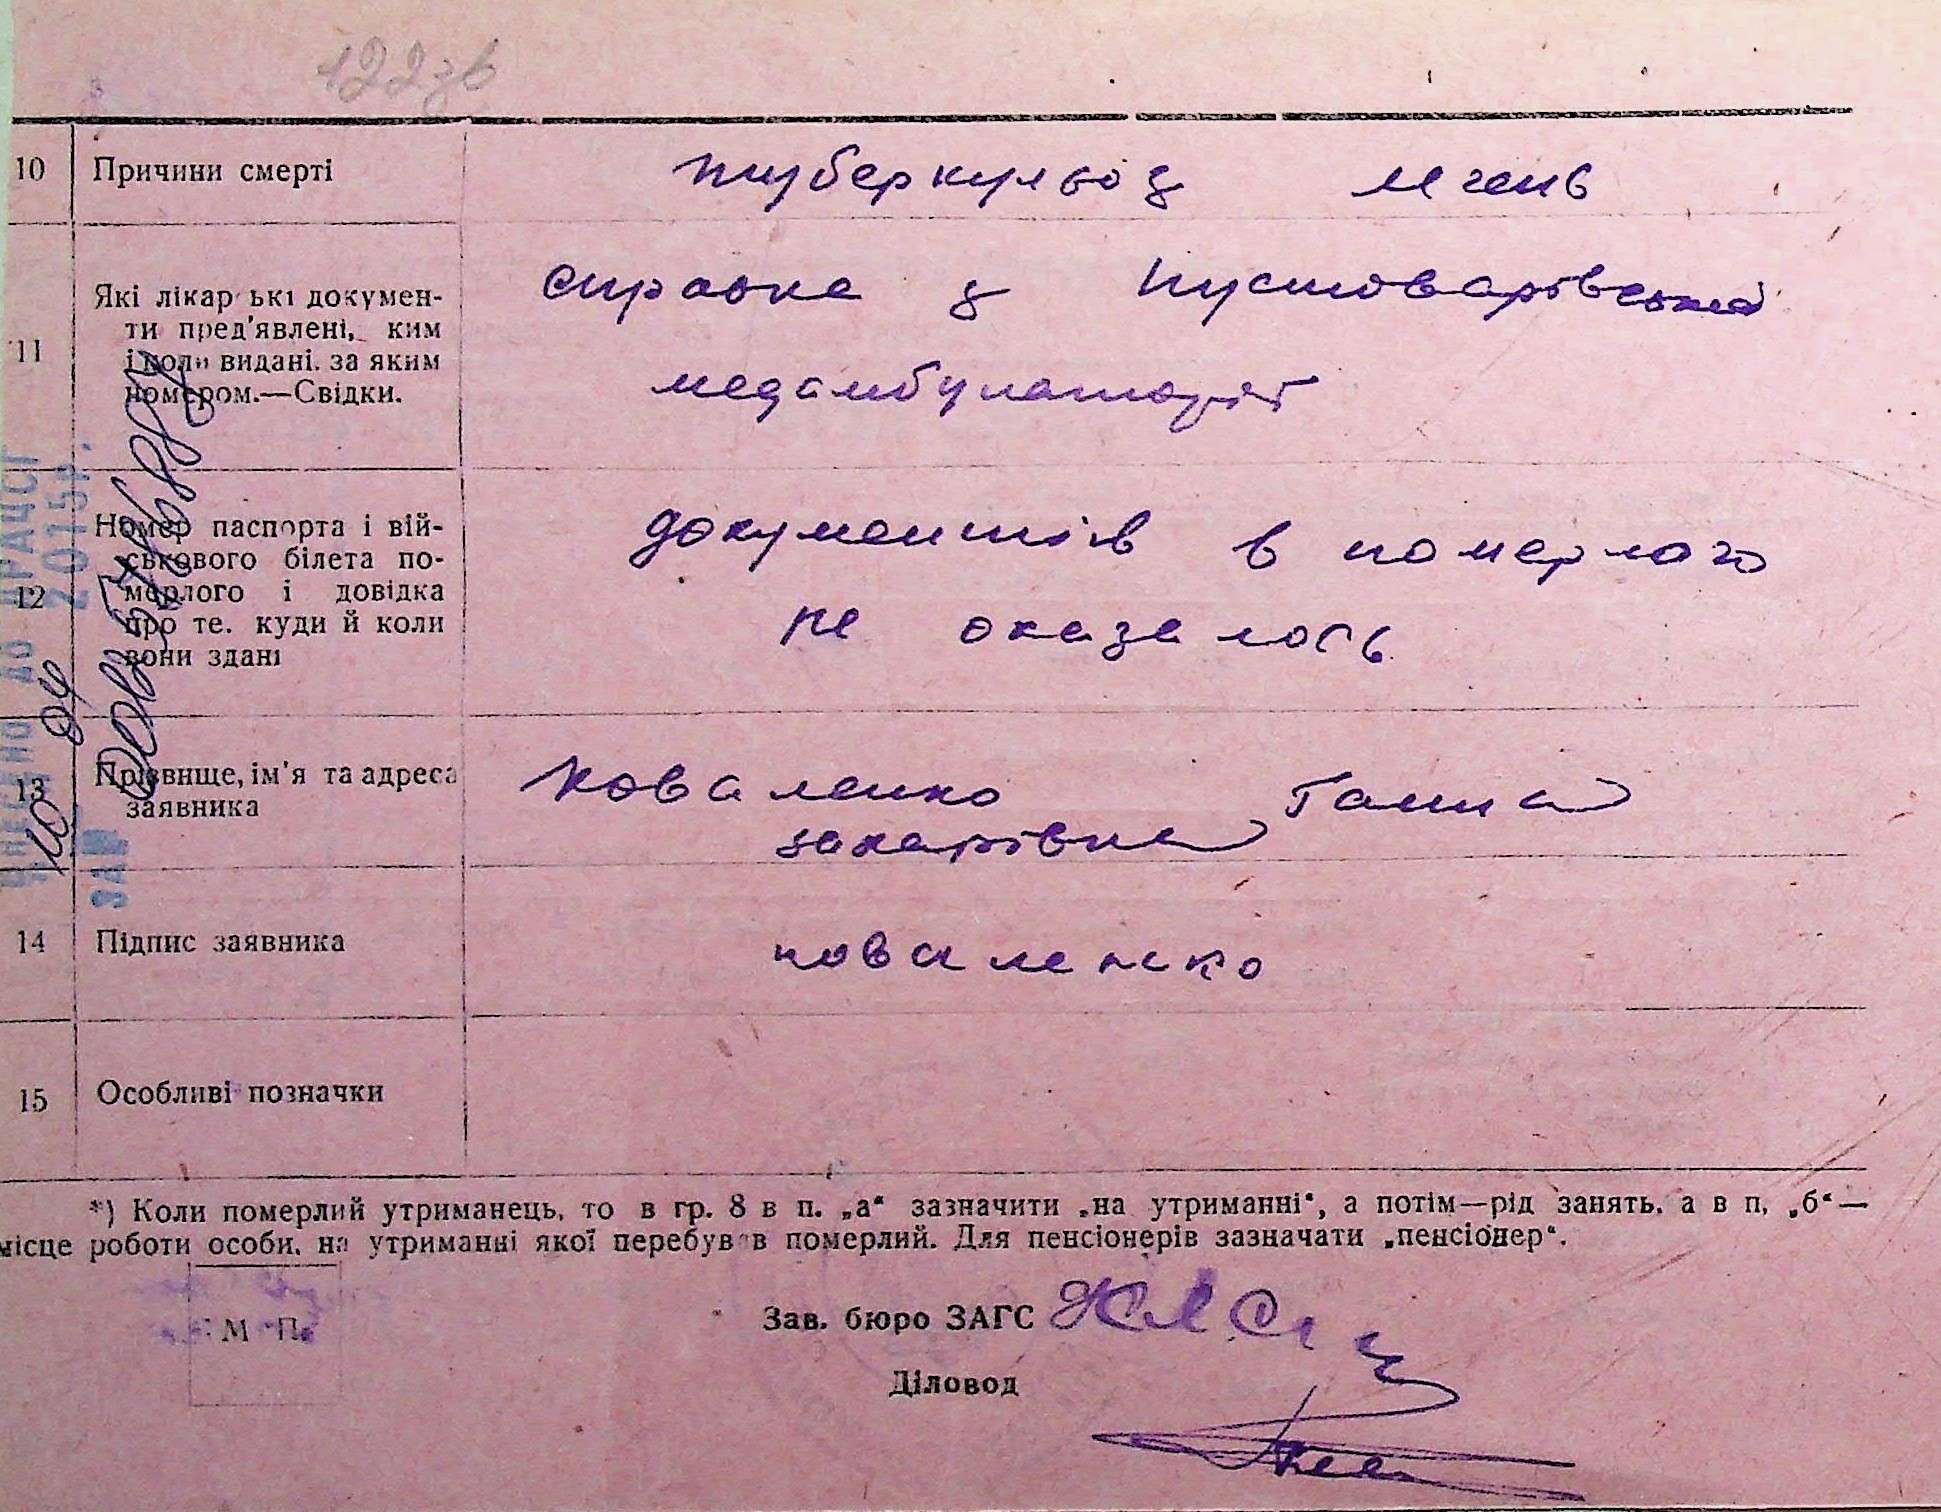 122зв
10 Причини смерті туберкульоз легень
11 Які лікарські докумен-
ти пред'явлені, ким
і коли видані, за яким
номером.—Свідки.
справка з Пустоварівської
медамбулаторії
12 Номер паспорта і вій-
ськового білета по-
мерлого і довідка
про те, куди й коли
вони здані
документів в померлого
не оказалось
13 Прізвище, ім'я та адреса
заявника
Коваленко Ганна
Захарівна
14 Підпис заявника Коваленко
15 Особливі позначки
*) Коли померлий утриманець, то в гр. 8 в п. „а“ зазначити „на утриманні“, а потім—рід занять, а в п. „б“—
місце роботи особи, на утриманні якої перебував померлий. Для пенсіонерів зазначати „пенсіонер“.
М П.
Зав. бюро ЗАГС
Діловод
ВНЕСЕНО ДО ДРАЦСГ
10 04 2015р.
ЗА №